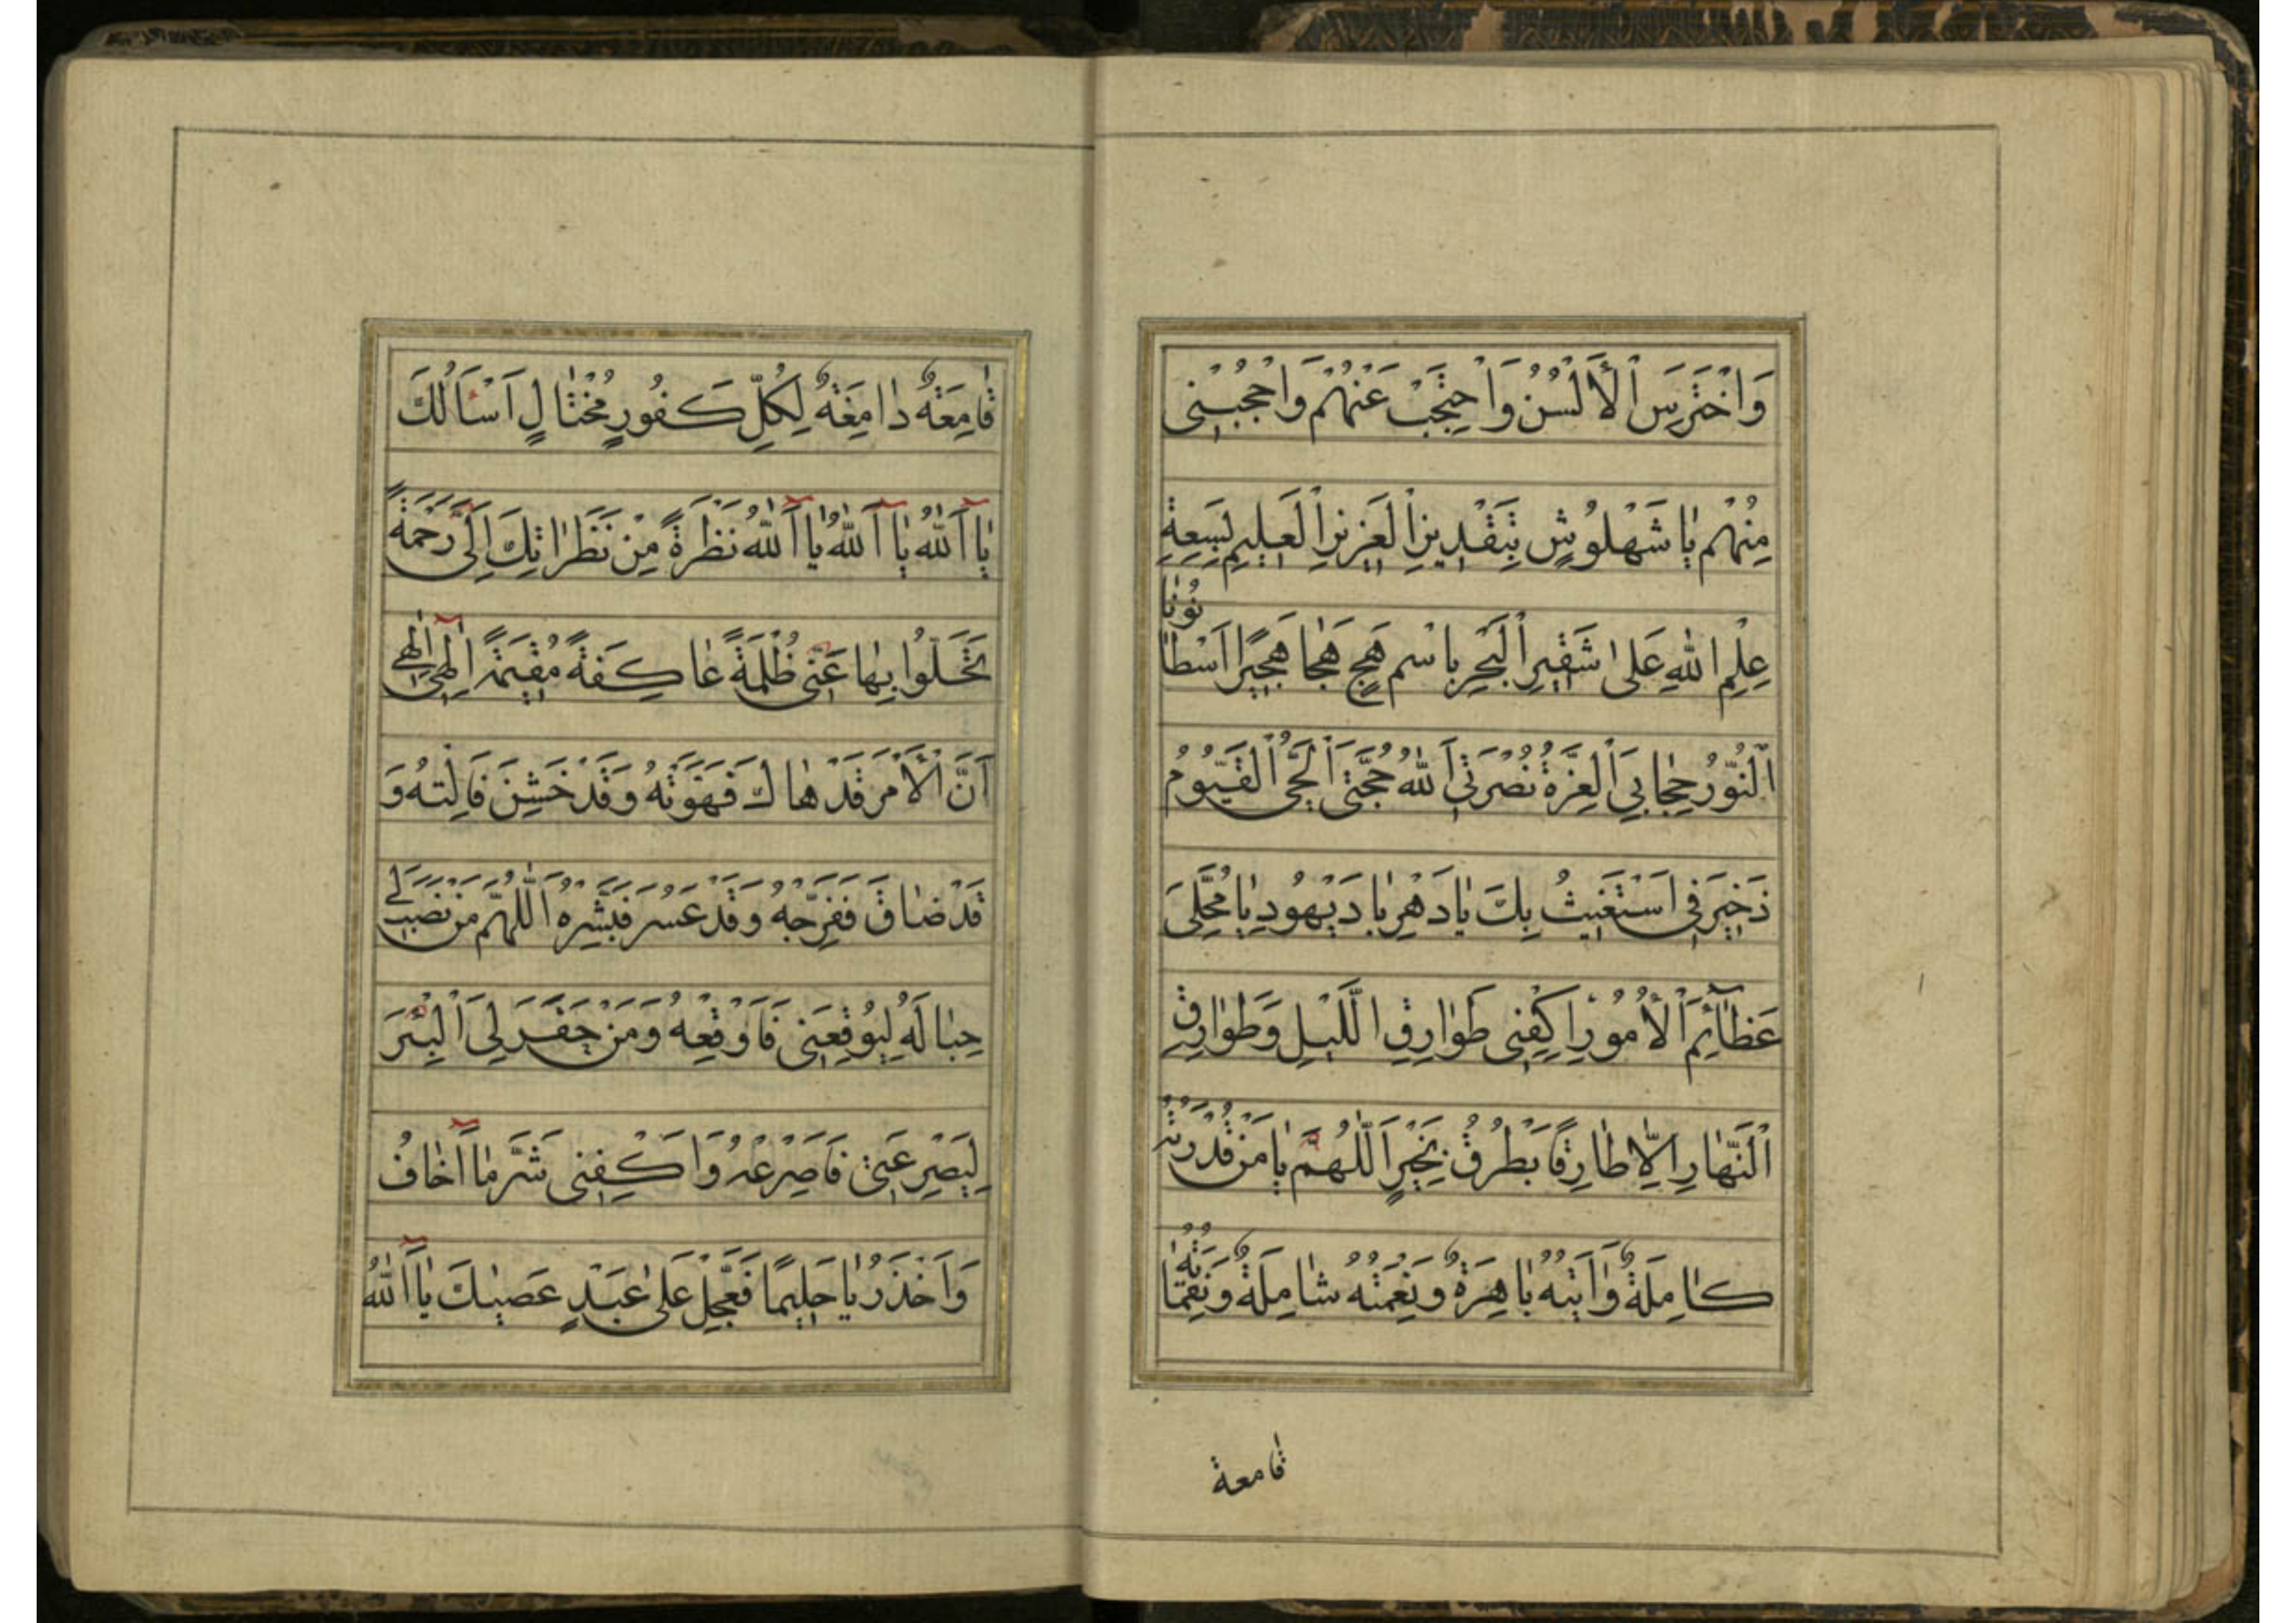 وَاخْتَرِسَ الْأَلْسُنْ وَاحْتَجِبْ عَنْهُمْ وَاحْجُبْنِي
مِنْهُمْ يَا شَهْلُوشٍ بِتَقْدِيرِ الْعَزِيزِ الْعَلِيمِ بِسِعَةِ
عِلْمِ اللهِ عَلَى شَفِيرِ الْبَحْرِ بِاسْمِ هَجٍ هَجَا هَجِيرًا اَسْطَانُونَا
اَلنُّورُ حِجَابِي اَلْعِزَّةُ نُصْرَتِي اَللهُ حُجَّتِي اَلْحَيُّ الْقَيُّومُ
ذَخِيرَتِي اَسْتَغِيثُ بِكَ يَا دَهْرِ يَا دَيْهُودِ يَا مُجَلِّيَ
عَظَائِمَ الْأُمُورِ اكْفِنِي طَوَارِقِ اللَّيْلِ وَطَوَارِقِ
اَلنَّهَارِ اِلَّا طَارِقًا يَطْرُقُ بِخَيْرٍ اَللّٰهُمَّ يَا مَنْ قُدْرَتُهُ
كَامِلَةٌ وَاٰيَتُهُ بَاهِرَةٌ وَنِعْمَتُهُ شَامِلَةٌ وَنِقْمَاتُهُ
قامعة
قَامِعَةٌ دَامِغَةٌ لِكُلِّ كَفُورٍ مُخْتَالٍ اَسْاَلُكَ
يَا اَللهُ يَا اَللهُ يَا اَللهُ نَظْرَةً مِنْ نَظَرَاتِكَ اِلَيَّ رَحْمَةً
تَجْلُوا بِهَا عَنِّي ظُلْمَةً عَاكِفَةً مُقِيمَةً اِلٰهِي اِلٰهِي
اَنَّ الْأَمْرَ قَدْ هَالَ فَهَوِّنْهُ وَقَدْ خَشِنَ فَاَلِنْهُ وَ
قَدْ ضَاقَ فَفَرِّجْهُ وَقَدْ عَسُرَ فَيَسِّرْهُ اَللّٰهُمَّ مَنْ نَصَبَ لِي
حِبَالَهُ لِيُوقِعَنِي فَاَوْقِعْهُ وَمَنْ حَفَرَ لِيَ الْبِئْرَ
لِيَصْرَعَنِي فَاصْرَعْهُ وَاكْفِنِي شَرَّ مَا اَخَافُ
وَاَحْذَرُ يَا حَلِيمًا فَعَجِّلْ عَلَى عَبْدٍ عَصَيٰكَ يَا اَللهُ